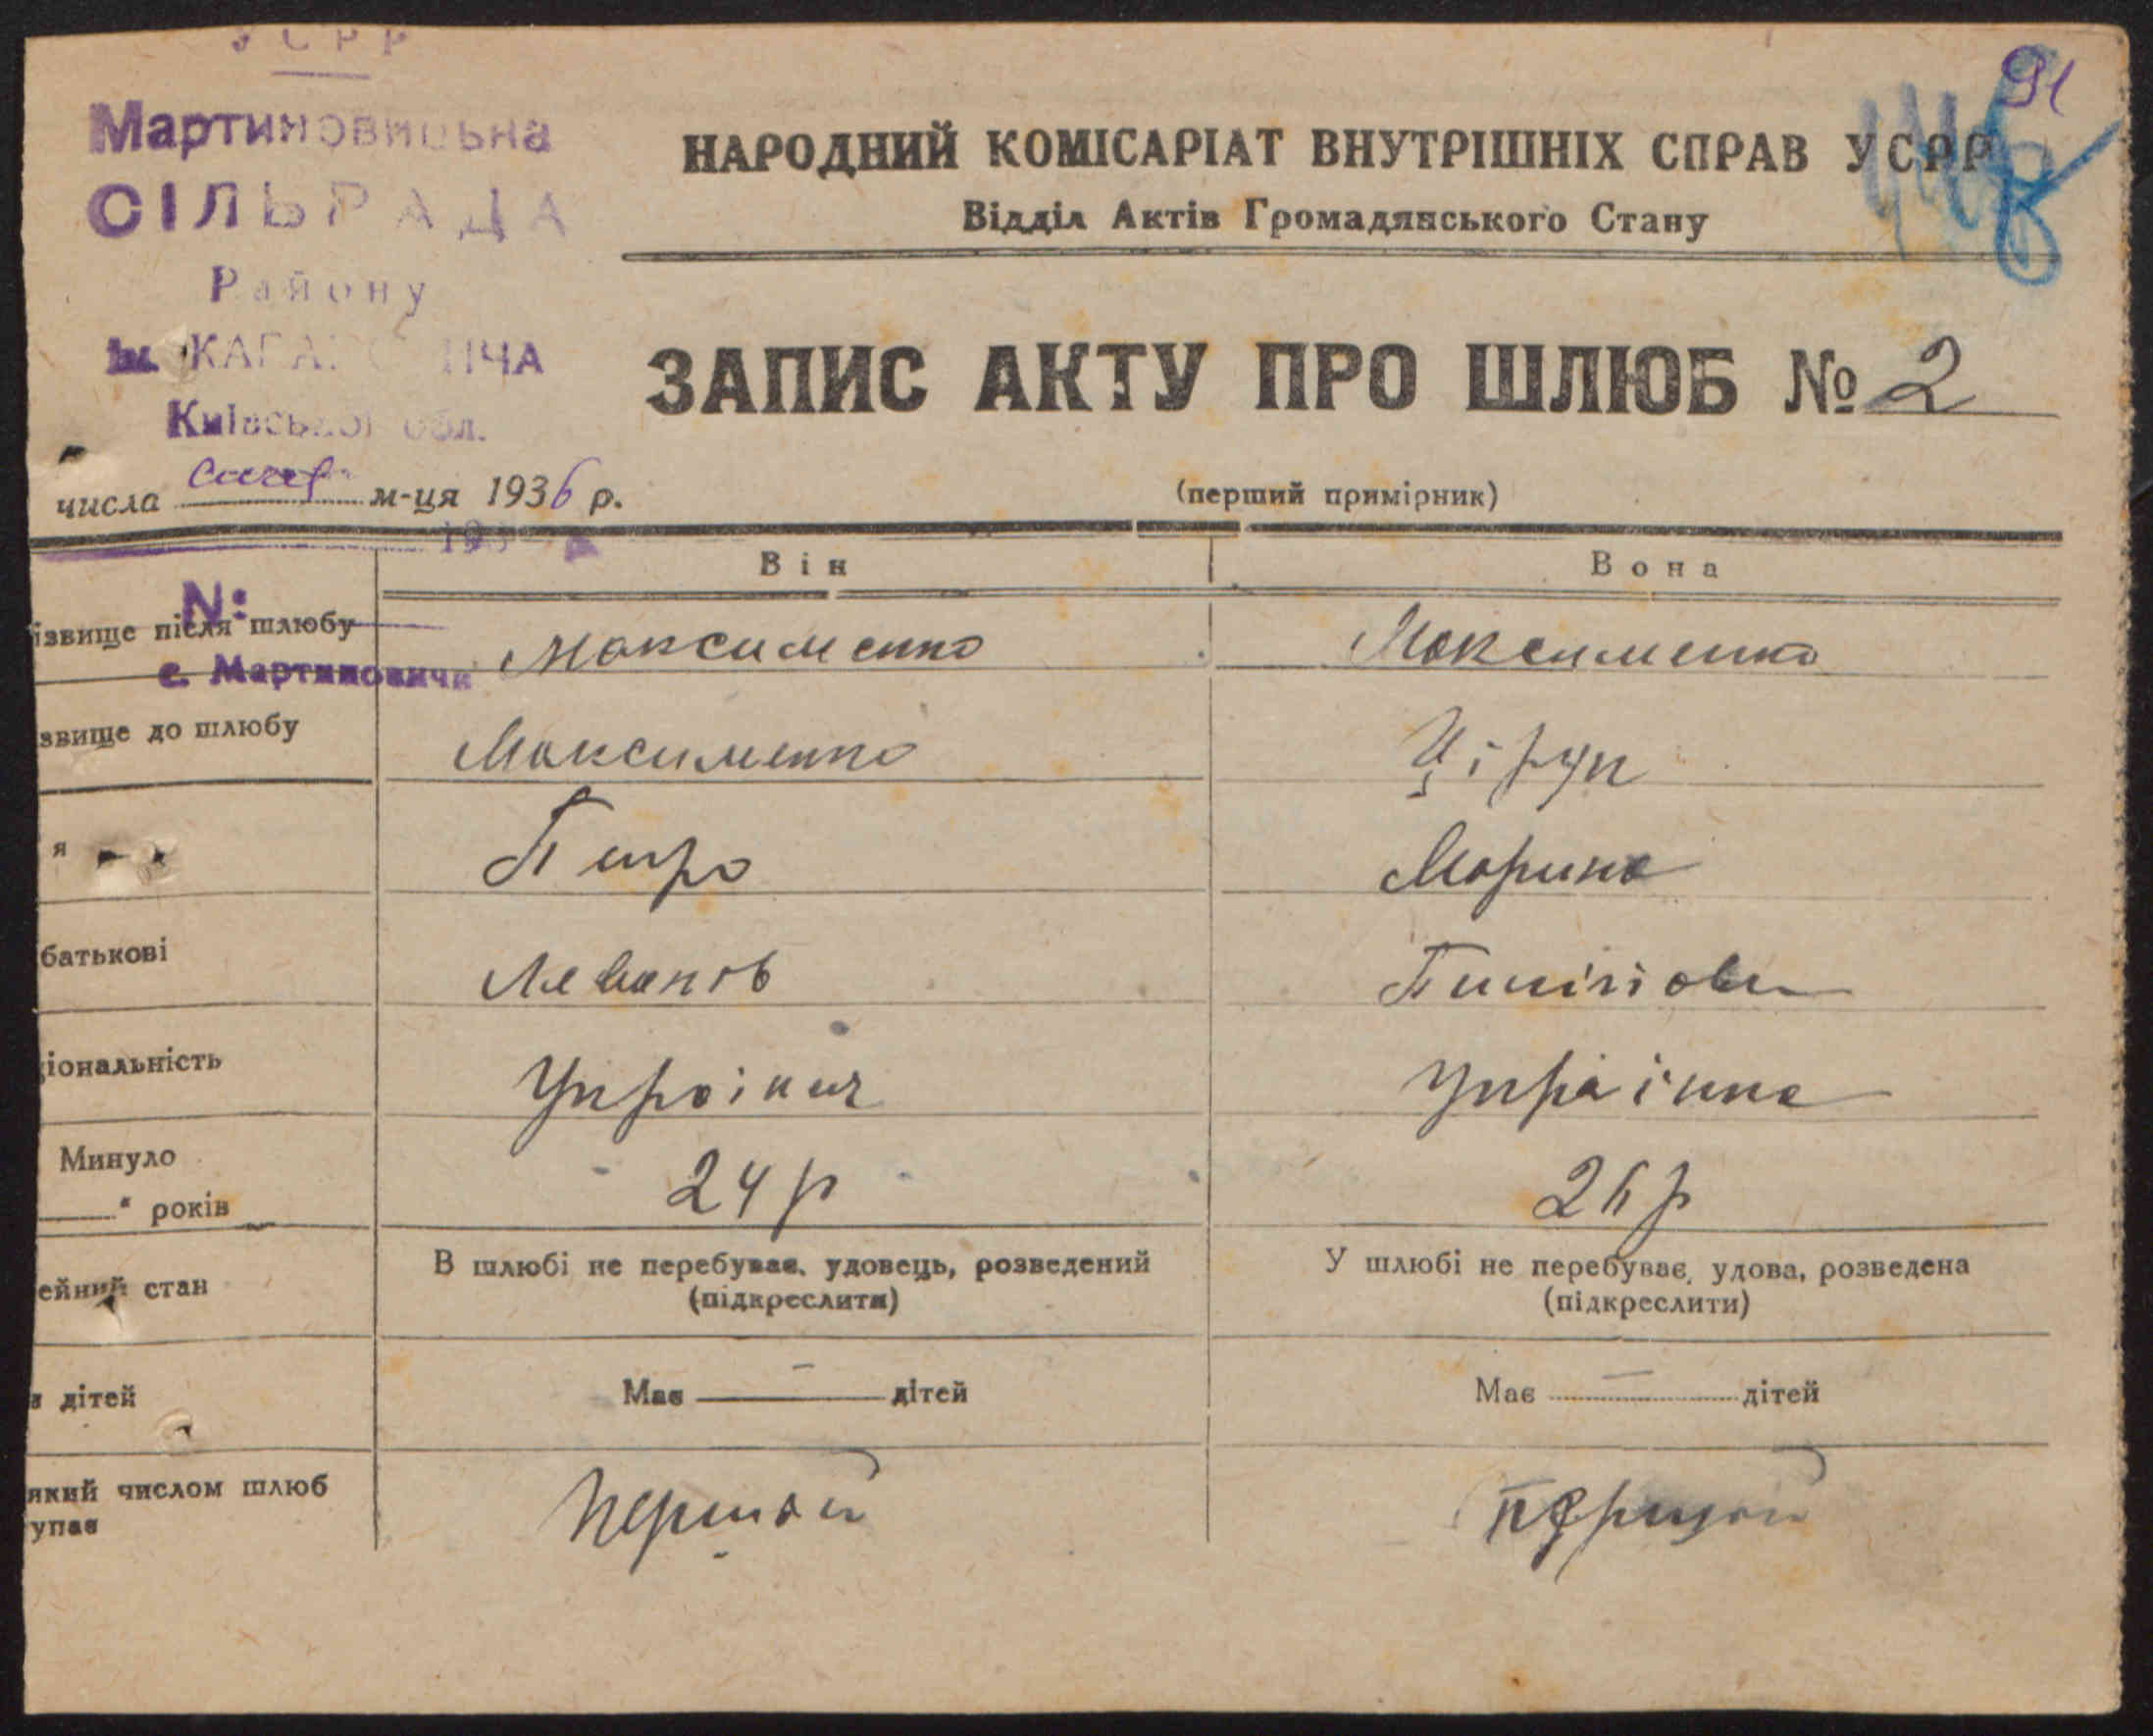 УСРР
Мартиновицька
СІЛЬРАДА
Району
ім. КАГАНОВИЧА
Київської обл.
91
НАРОДНИЙ КОМІСАРІАТ ВНУТРІШНІХ СПРАВ УСРР
Відділ Актів Громадянського Стану
ЗАПИС АКТУ ПРО ШЛЮБ № 2
числа м-ця 1936 р.
(перший примірник)
193
Він Вона
№
ізвище після шлюбу Максименко Максименко
с. Мартиновичи
звище до шлюбу Максименко Ціруп
я Питро Марина
батькові
іональність Українич Українка
Минуло
" років 24 р 26 р
ейний стан В шлюбі не перебуває, удовець, розведений У шлюбі не перебуває, удова, розведена
(підкреслити) (підкреслити)
в дітей Має — дітей Має — дітей
який числом шлюб
упає
першой першой